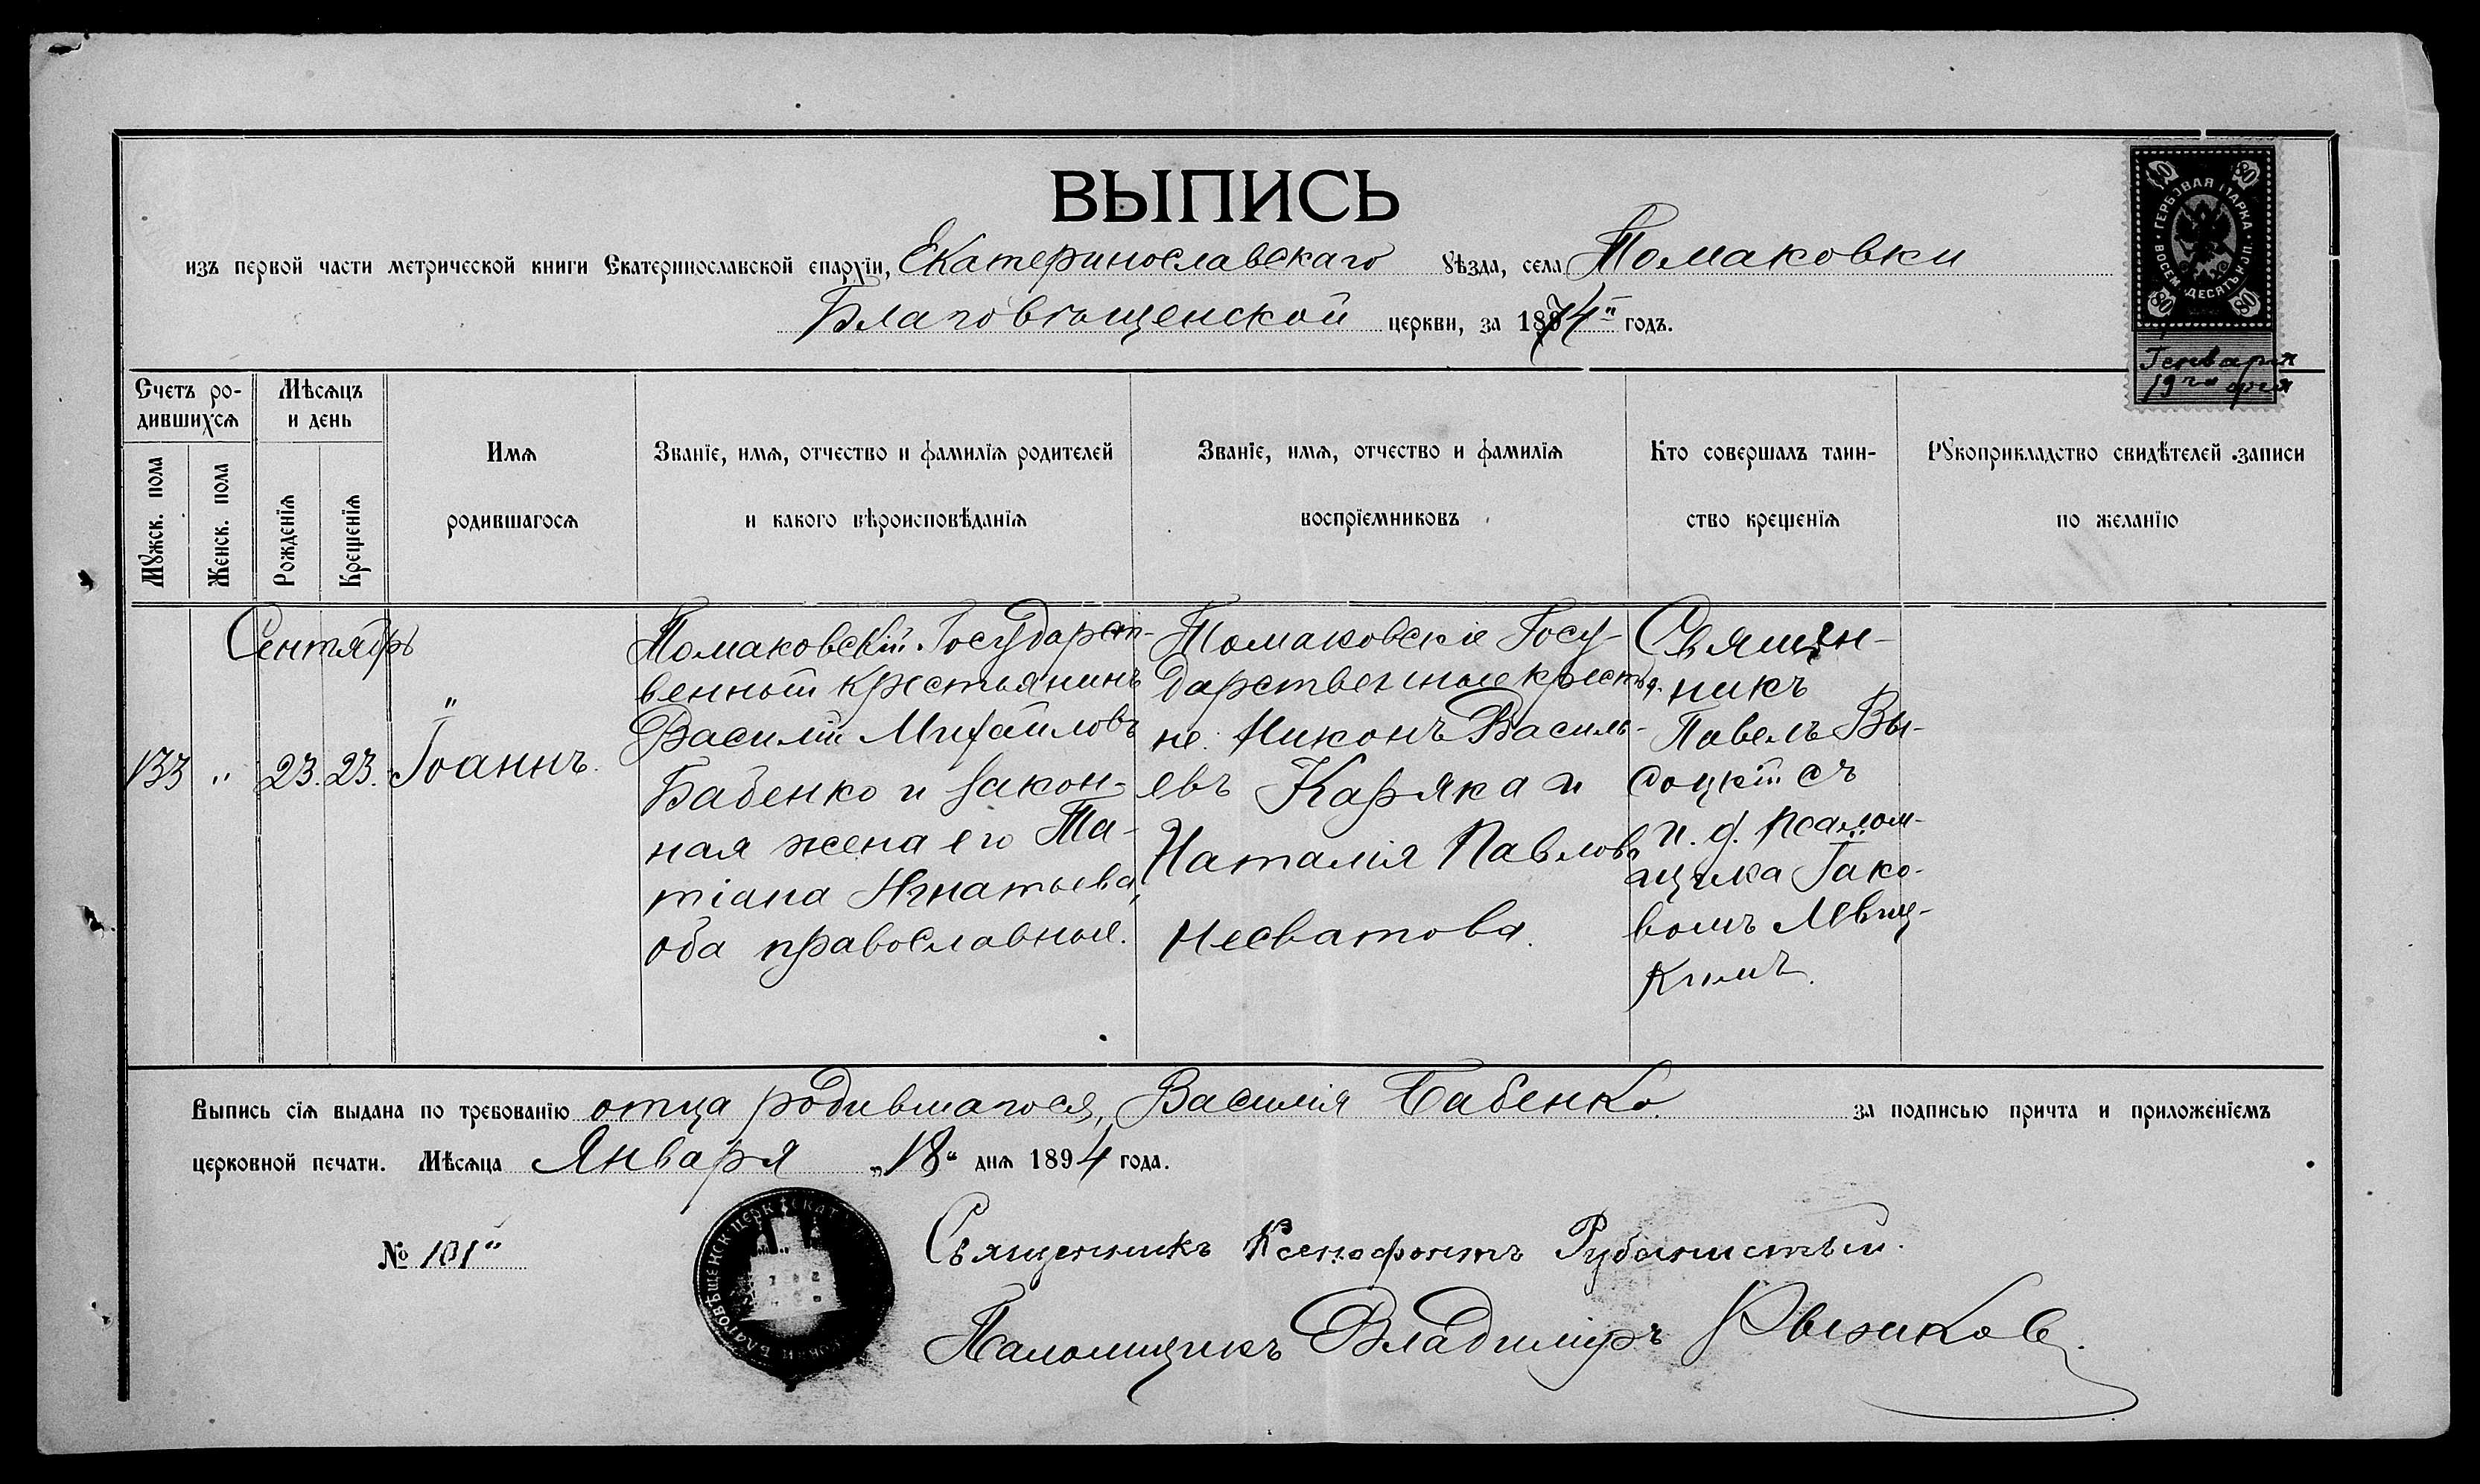 ВЫПИСЬ
изъ первой части метрической книги Екатеринославской епархіи, Екатеринославскаго уѣзда, села Томаковки
Благовѣщенской церкви, за 1874" годъ.
ГЕРБОВАЯ МАРКА
ВОСЕМЬДЕСЯТЪ КОП.
80 80
80 80
Генваря
19го дня
Счетъ ро-
дившихся
Мужск. пола
Женск. пола
Мѣсяцъ
и день
Рожденія
Крещенія
Имя
родившагося
Званіе, имя, отчество и фамилія родителей
и какого вѣроисповѣданія
Званіе, имя, отчество и фамилія
воспріемниковъ
Кто совершалъ таин-
ство крещенія
Рукоприкладство свидѣтелей записи
по желанію
Сентябрь
133 " 23. 23. Іоаннъ.
Томаковскій Государст-
венный крестьянинъ
Василій Михайловъ
Бабенко и закон-
ная жена его Та-
тіана Игнатьева,
оба православные.
Томаковскіе Госу-
дарственные крестья-
не: Никонъ Василь-
евъ Каряка и
Наталія Павлова
Несватова.
Священ-
никъ
Павелъ Вы-
соцкій съ
и. д. псалом-
щика Іако-
вомъ Левиц-
кимъ.
Выпись сія выдана по требованію отца родившагося, Василія Бабенко. за подписью причта и приложеніемъ
церковной печати. Мѣсяца Января „18" дня 1894 года.
№ 101"
Священникъ Ксенофонтъ Рубанистый.
Псаломщикъ Владиміръ